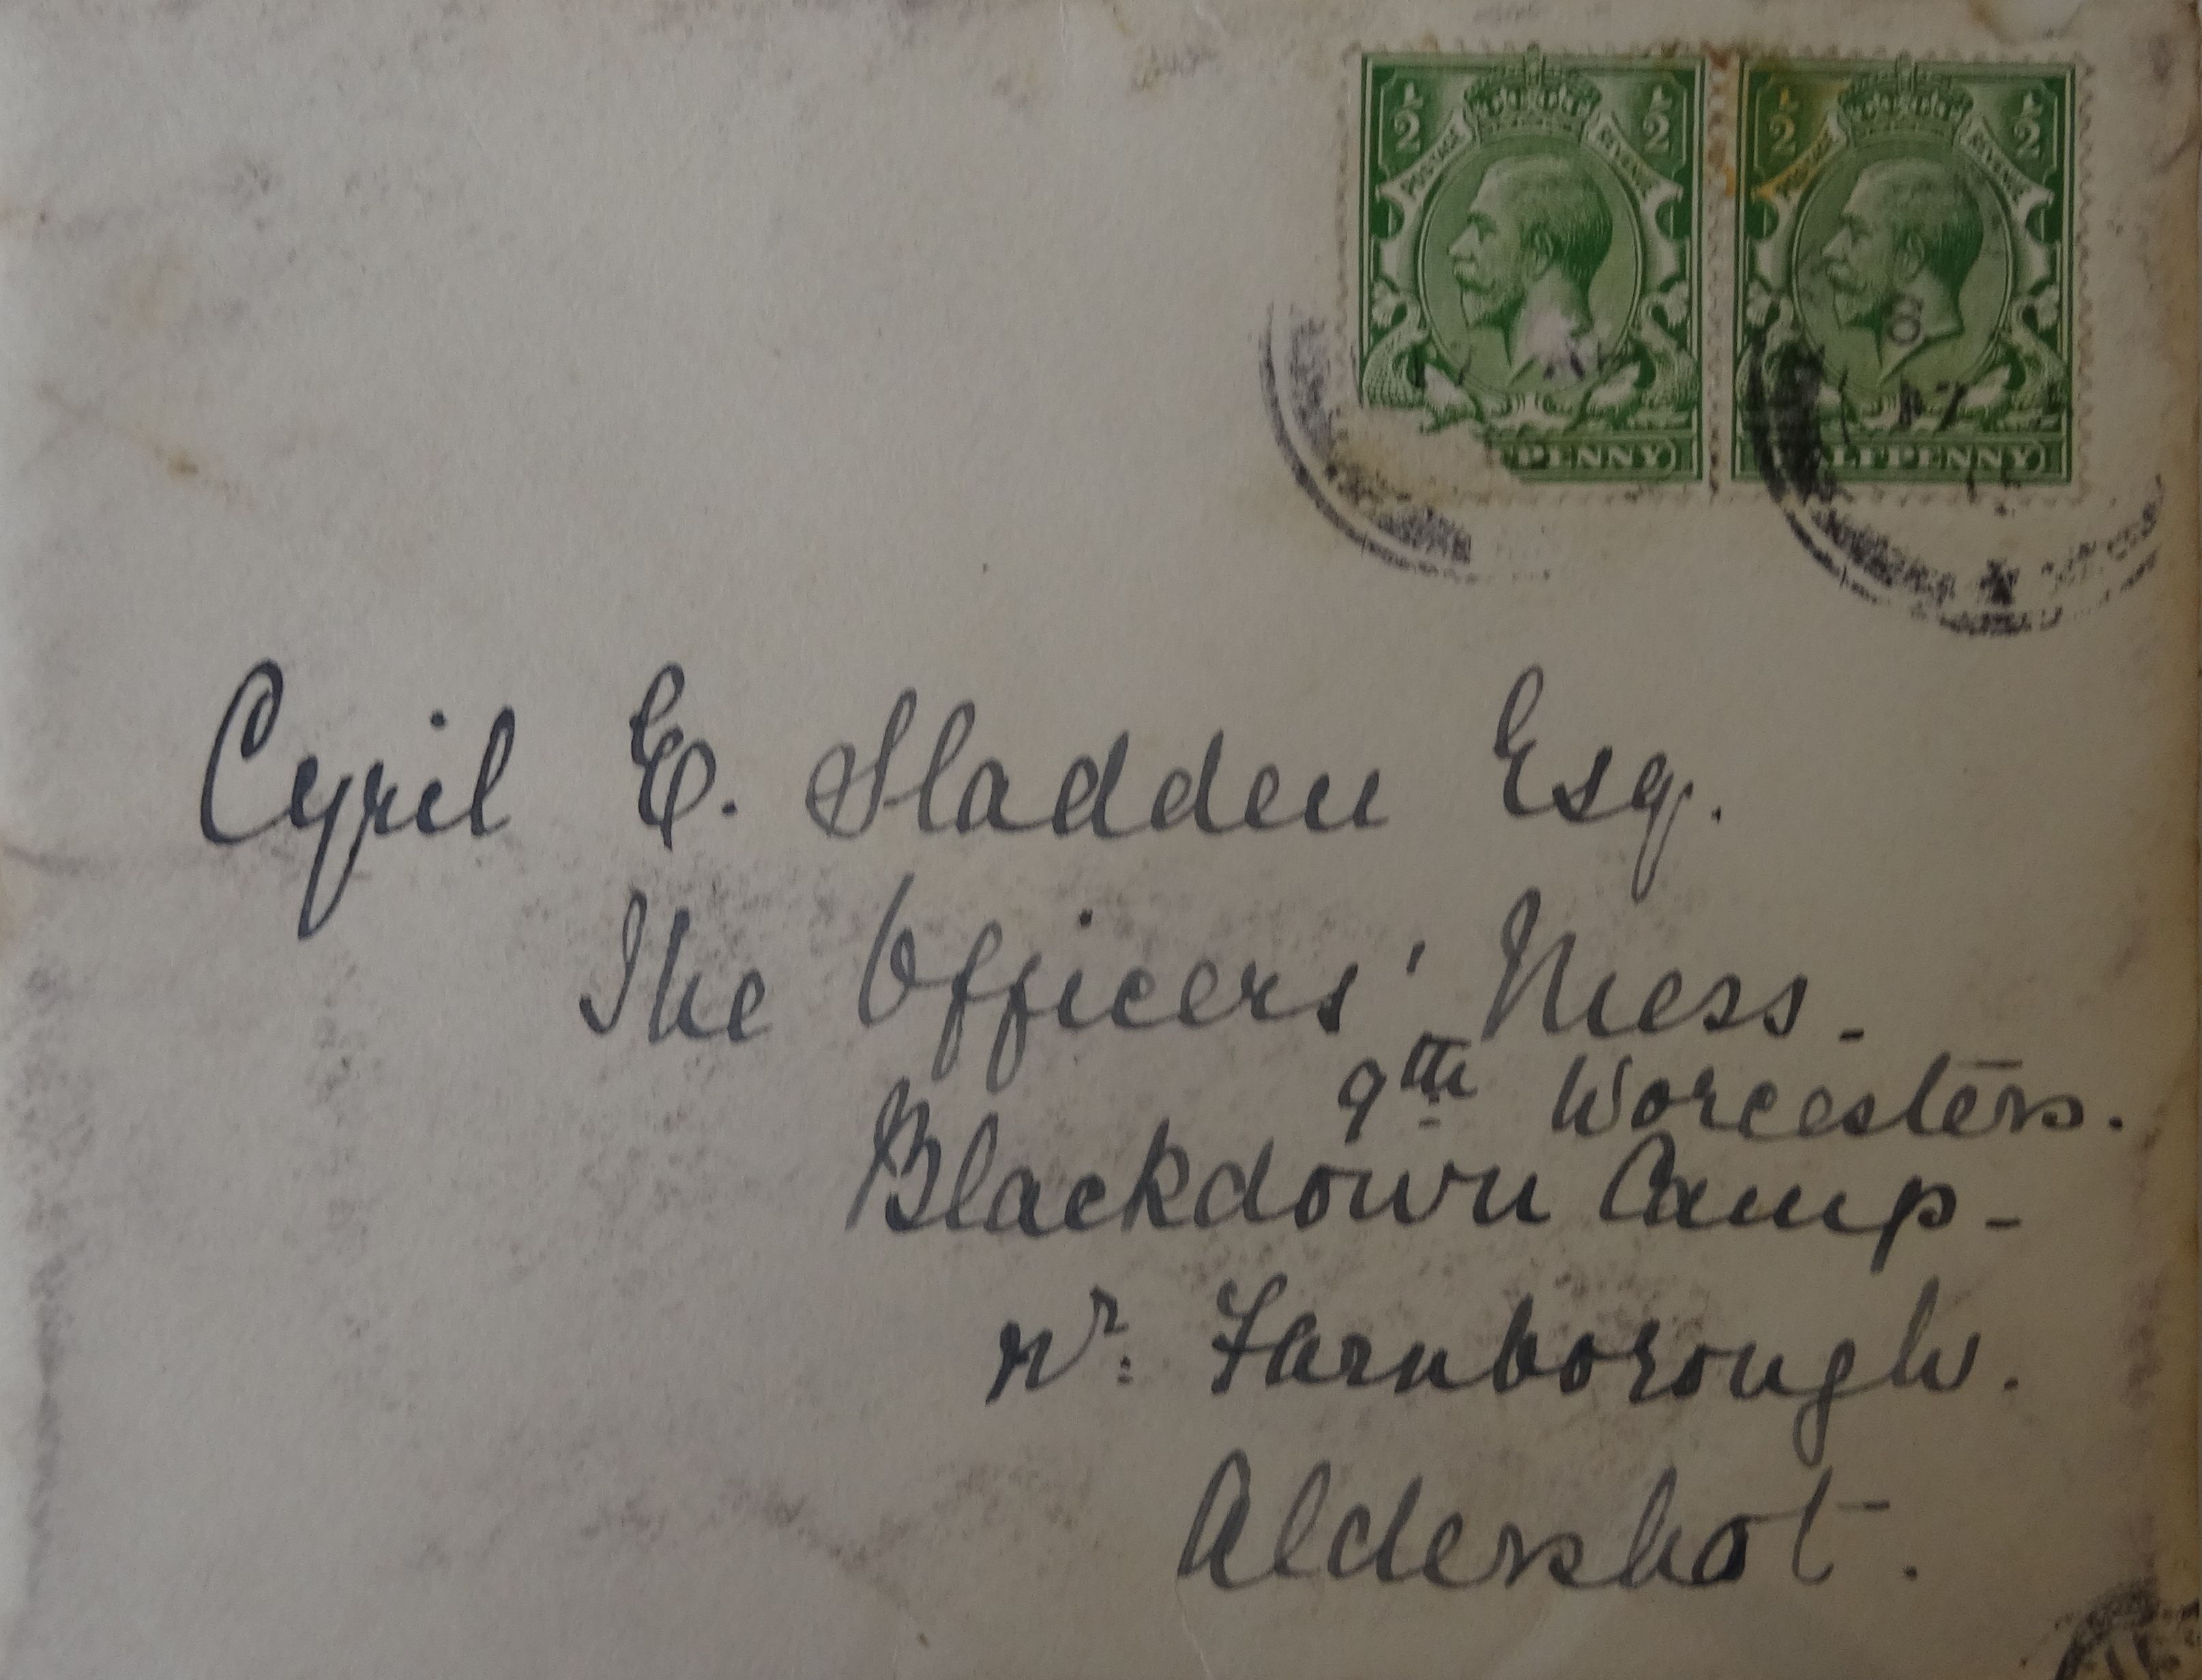 ½ ½ ½ ½
POSTAGE REVENUE POSTAGE REVENUE
FPENNY ALFPENNY
Cyril E. Sladden Esq.
The Officers' Mess.
9th Worcesters.
Blackdown Camp -
Nr. Farnborough.
Aldershot.